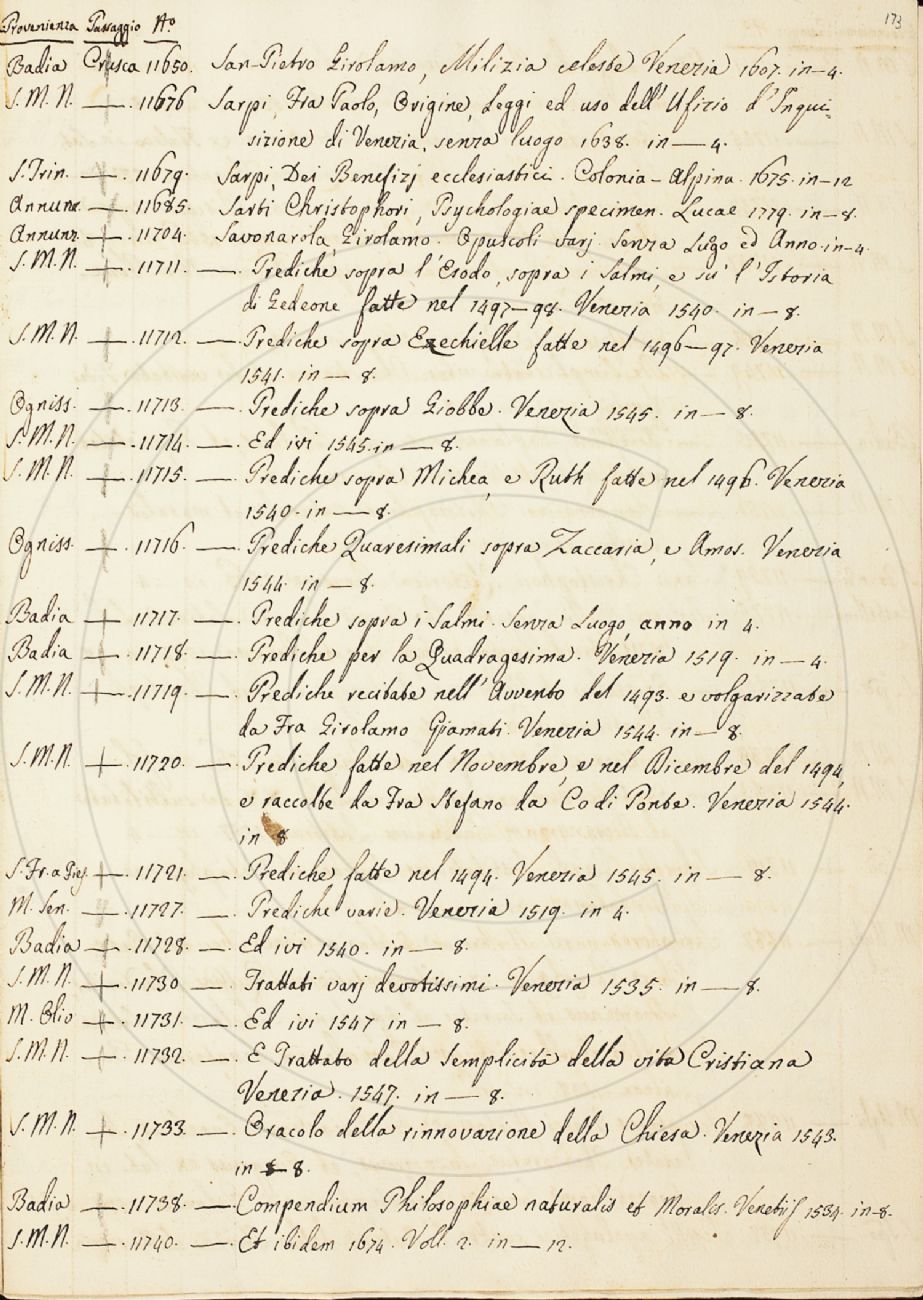 173
Provenienza Passaggio No.
Badia Crusca 11650. San-Pietro Girolamo, Milizia celeste Venezia 1607. in-4.
S.M.N. —. 11676 Sarpi, Fra Paolo, Origine, Leggi ed uso dell'Ufizio d'Inqui-
sizione di Venezia, senza luogo 1638. in — 4.
S. Trin. —. 11679. Sarpi, Dei Benefizj ecclesiastici. Colonia-Alpina. 1675. in-12
Annunz. —. 11685. Sarti Christophori, Psychologiae specimen. Lucae 1779. in-8.
Annunz. —. 11704. Savonarola, Girolamo. Opuscoli varj. Senza Lugo ed Anno. in-4.
S.M.N. —. 11711. —. Prediche sopra l'Esodo, sopra i Salmi, e su' l'Istoria
di Gedeone fatte nel 1497-98. Venezia 1540. in — 8.
S.M.N. —. 11712. —. Prediche sopra Ezechielle fatte nel 1496-97. Venezia
1541. in — 8.
Ogniss. —. 11713. —. Prediche sopra Giobbe. Venezia 1545. in — 8.
S.M.N. —. 11714. —. Ed ivi 1545. in — 8.
S.M.N. —. 11715. —. Prediche sopra Michea, e Ruth fatte nel 1496. Venezia
1540. in — 8.
Ogniss. —. 11716. —. Prediche Quaresimali sopra Zaccaria, e Amos. Venezia
1544. in — 8.
Badia —. 11717. —. Prediche sopra i Salmi. Senza Luogo, anno in 4.
Badia —. 11718. —. Prediche per la Quadragesima. Venezia 1519. in — 4.
S.M.N. —. 11719. —. Prediche recitate nell'Avvento del 1493. e volgarizzate
da Fra Girolamo Giamati. Venezia 1544. in — 8.
S.M.N. —. 11720. —. Prediche fatte nel Novembre, e nel Dicembre del 1494,
e raccolte da Fra Stefano da Co di Ponte. Venezia 1544.
in 8
S. Fr. a Pag. —. 11721. —. Prediche fatte nel 1494. Venezia 1545. in — 8.
M. Sen. —. 11727. —. Prediche varie. Venezia 1519. in 4.
Badia —. 11728. —. Ed ivi 1540. in — 8.
S.M.N. —. 11730 —. Trattati varj devotissimi. Venezia 1535. in — 8.
M. Oliv —. 11731. —. Ed ivi 1547 in — 8.
S.M.N. —. 11732. —. E Trattato della Semplicità della vita Cristiana
Venezia. 1547. in — 8.
S.M.N. —. 11733. —. Oracolo della rinnovazione della Chiesa. Venezia 1543.
in 8.
Badia —. 11738. —. Compendium Philosophiae naturalis et Moralis. Venetijs 1534. in-8.
S.M.N. —. 11740. —. Et ibidem 1674. Voll. 2. in — 12.